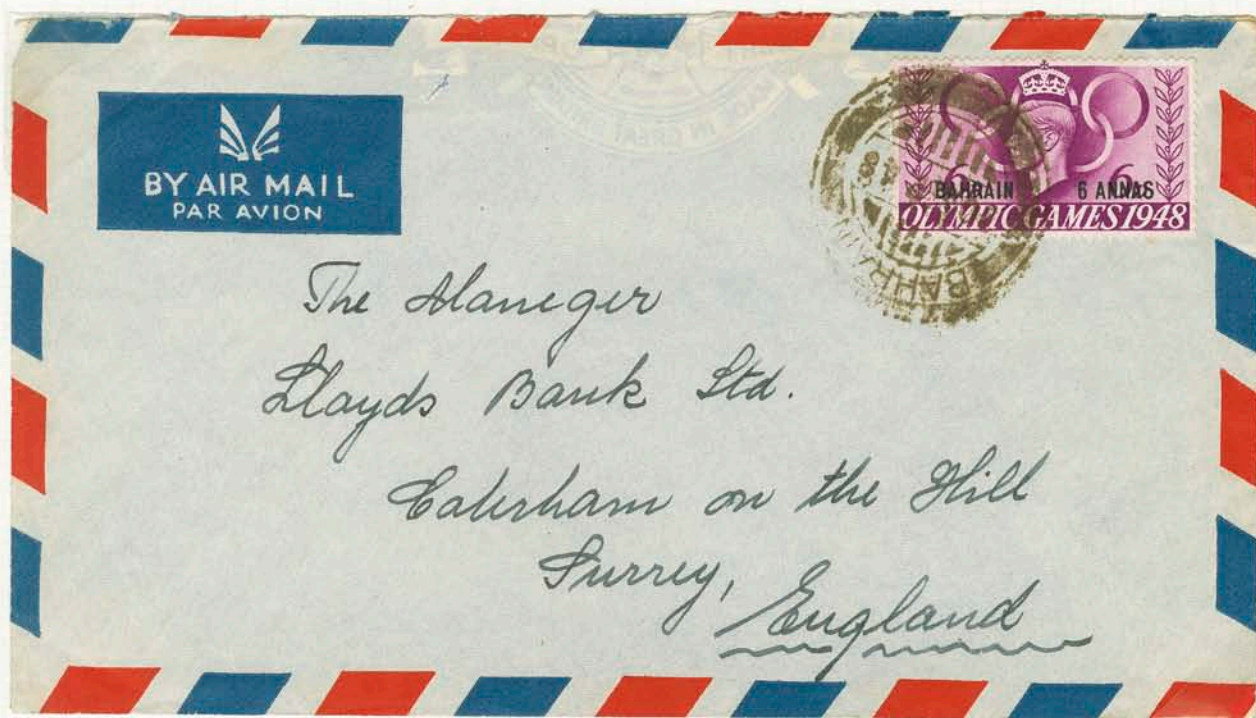 BY AIR MAIL
PAR AVION
6 6
BAHRAIN 6 ANNAS
OLYMPIC GAMES 1948
BAHRA
48
The Maneger
Lloyds Bank Ltd.
Caterham on the Hill
Surrey,
England